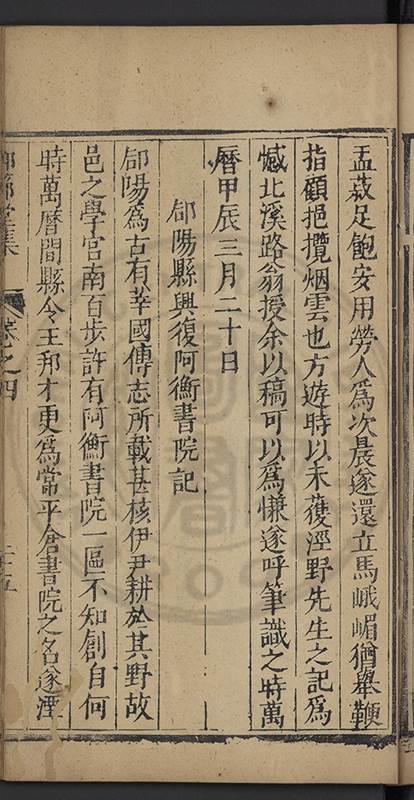 盂蔌足飽安用勞人爲次晨遂還立馬峨嵋猶舉鞭
指顧挹攬烟雲也方遊時以未獲涇野先生之記爲
憾北溪路翁授余以稿可以爲慊遂呼筆識之時萬
曆甲辰三月二十日
郃陽縣興復阿衡書院記
郃陽爲古有莘國傳志所載甚核伊尹耕於其野故
邑之學宮南百步許有阿衡書院一區不知創自何
時萬曆間縣令王邦才更爲常平倉書院之名遂湮
集 卷之四